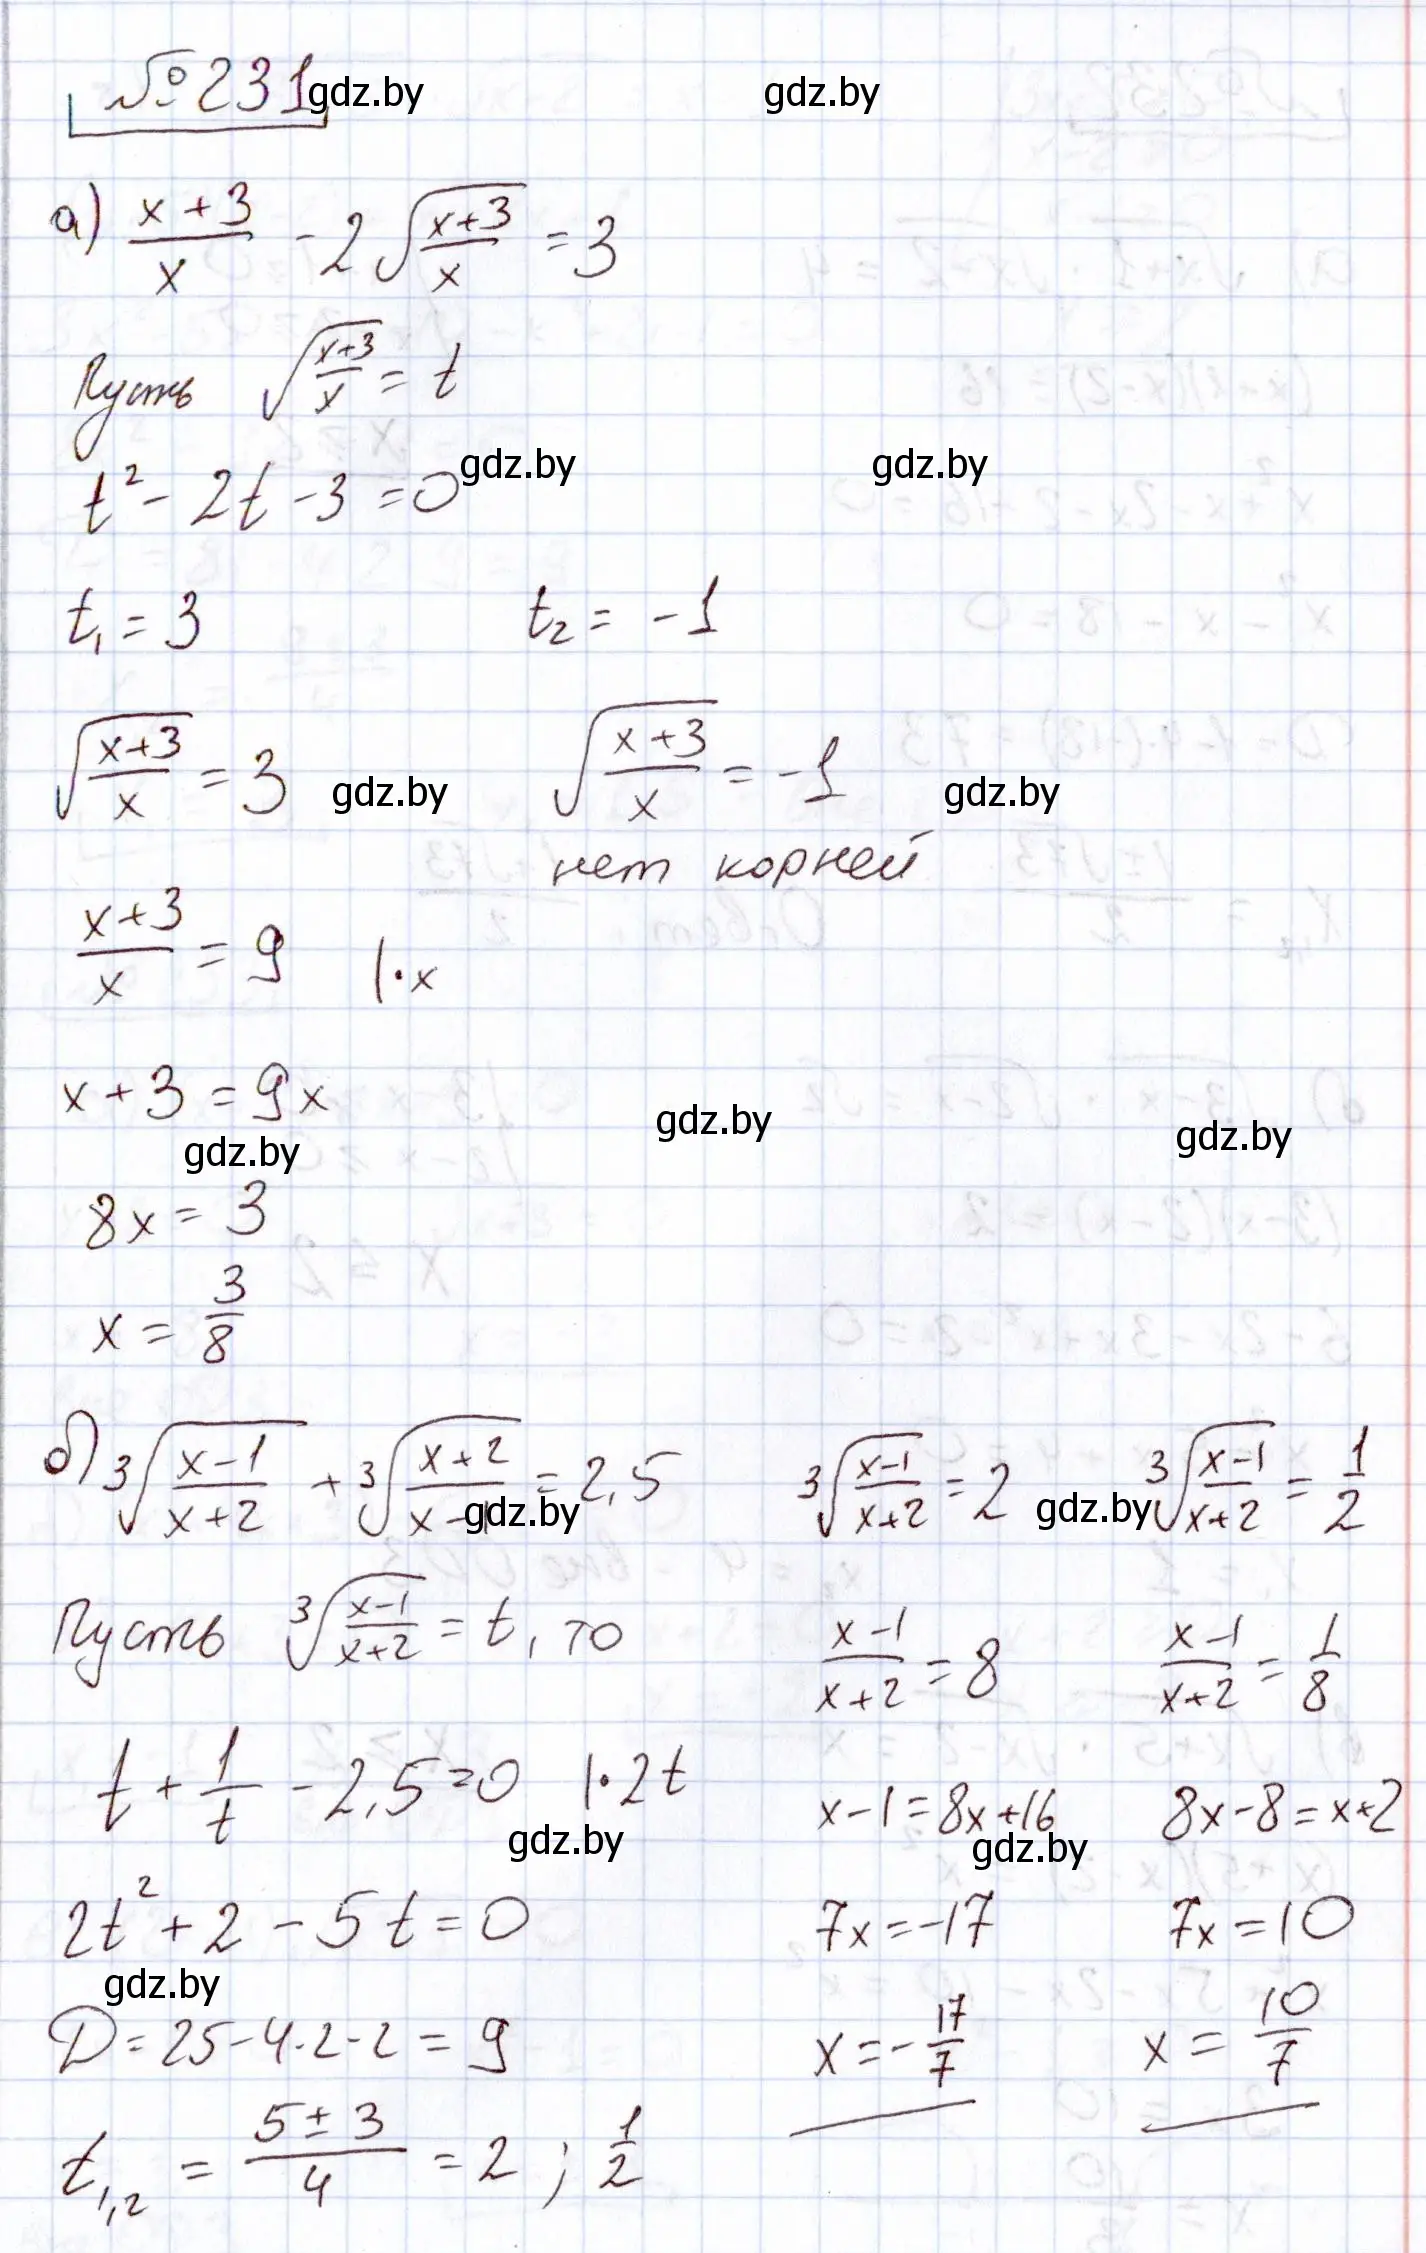 №231
gdz.by gdz.by
а) (x+3)/x - 2√((x+3)/x) = 3
Пусть √((x+3)/x) = t
gdz.by gdz.by
t² - 2t - 3 = 0
t₁ = 3 t₂ = -1
√((x+3)/x) = 3 √((x+3)/x) = -1
gdz.by gdz.by
нет корней
(x+3)/x = 9 |·x
x + 3 = 9x
gdz.by gdz.by gdz.by
8x = 3
x = 3/8
б) ³√((x-1)/(x+2)) + ³√((x+2)/(x-1)) = 2,5
gdz.by
Пусть ³√((x-1)/(x+2)) = t, то
t + 1/t - 2,5 = 0 |·2t
gdz.by
2t² + 2 - 5t = 0
gdz.by
D = 25 - 4·2·2 = 9
t₁,₂ = (5 ± 3)/4 = 2 ; 1/2
³√((x-1)/(x+2)) = 2 ³√((x-1)/(x+2)) = 1/2
gdz.by
(x-1)/(x+2) = 8 (x-1)/(x+2) = 1/8
x-1 = 8x+16 8x-8 = x+2
gdz.by
7x = -17 7x = 10
x = -17/7 x = 10/7